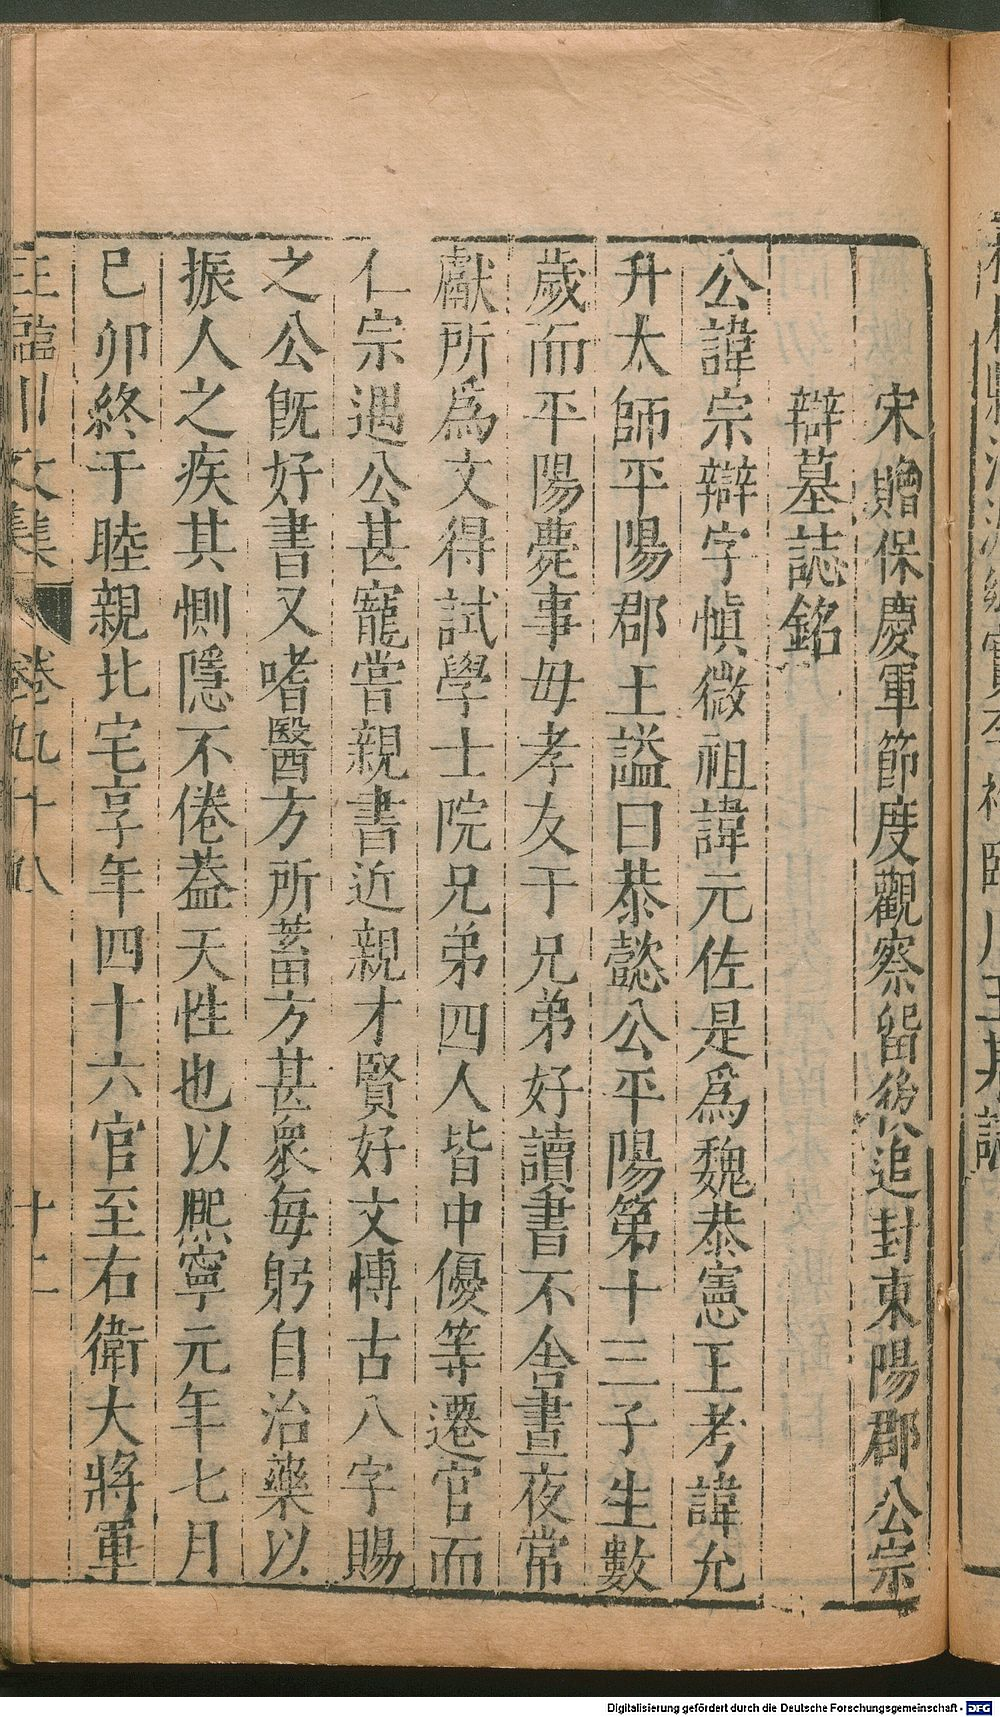 宋贈保慶軍節度觀察留後追封東陽郡公宗
辯墓誌銘
公諱宗辯字慎微祖諱元佐是爲魏恭憲王考諱允
升太師平陽郡王謚曰恭懿公平陽第十三子生數
歲而平陽薨事毋孝友于兄弟好讀書不舍晝夜常
獻所爲文得試學士院兄弟四人皆中優等遷官而
仁宗遇公甚寵嘗親書近親才賢好文愽古八字賜
之公旣好書又嗜醫方所蓄方甚衆每躬自治藥以
振人之疾其惻隱不倦蓋天性也以熈寧元年七月
已卯終于睦親北宅享年四十六官至右衛大將軍
王臨川文集
卷九十八
十二
Digitalisierung gefördert durch die Deutsche Forschungsgemeinschaft - DFG